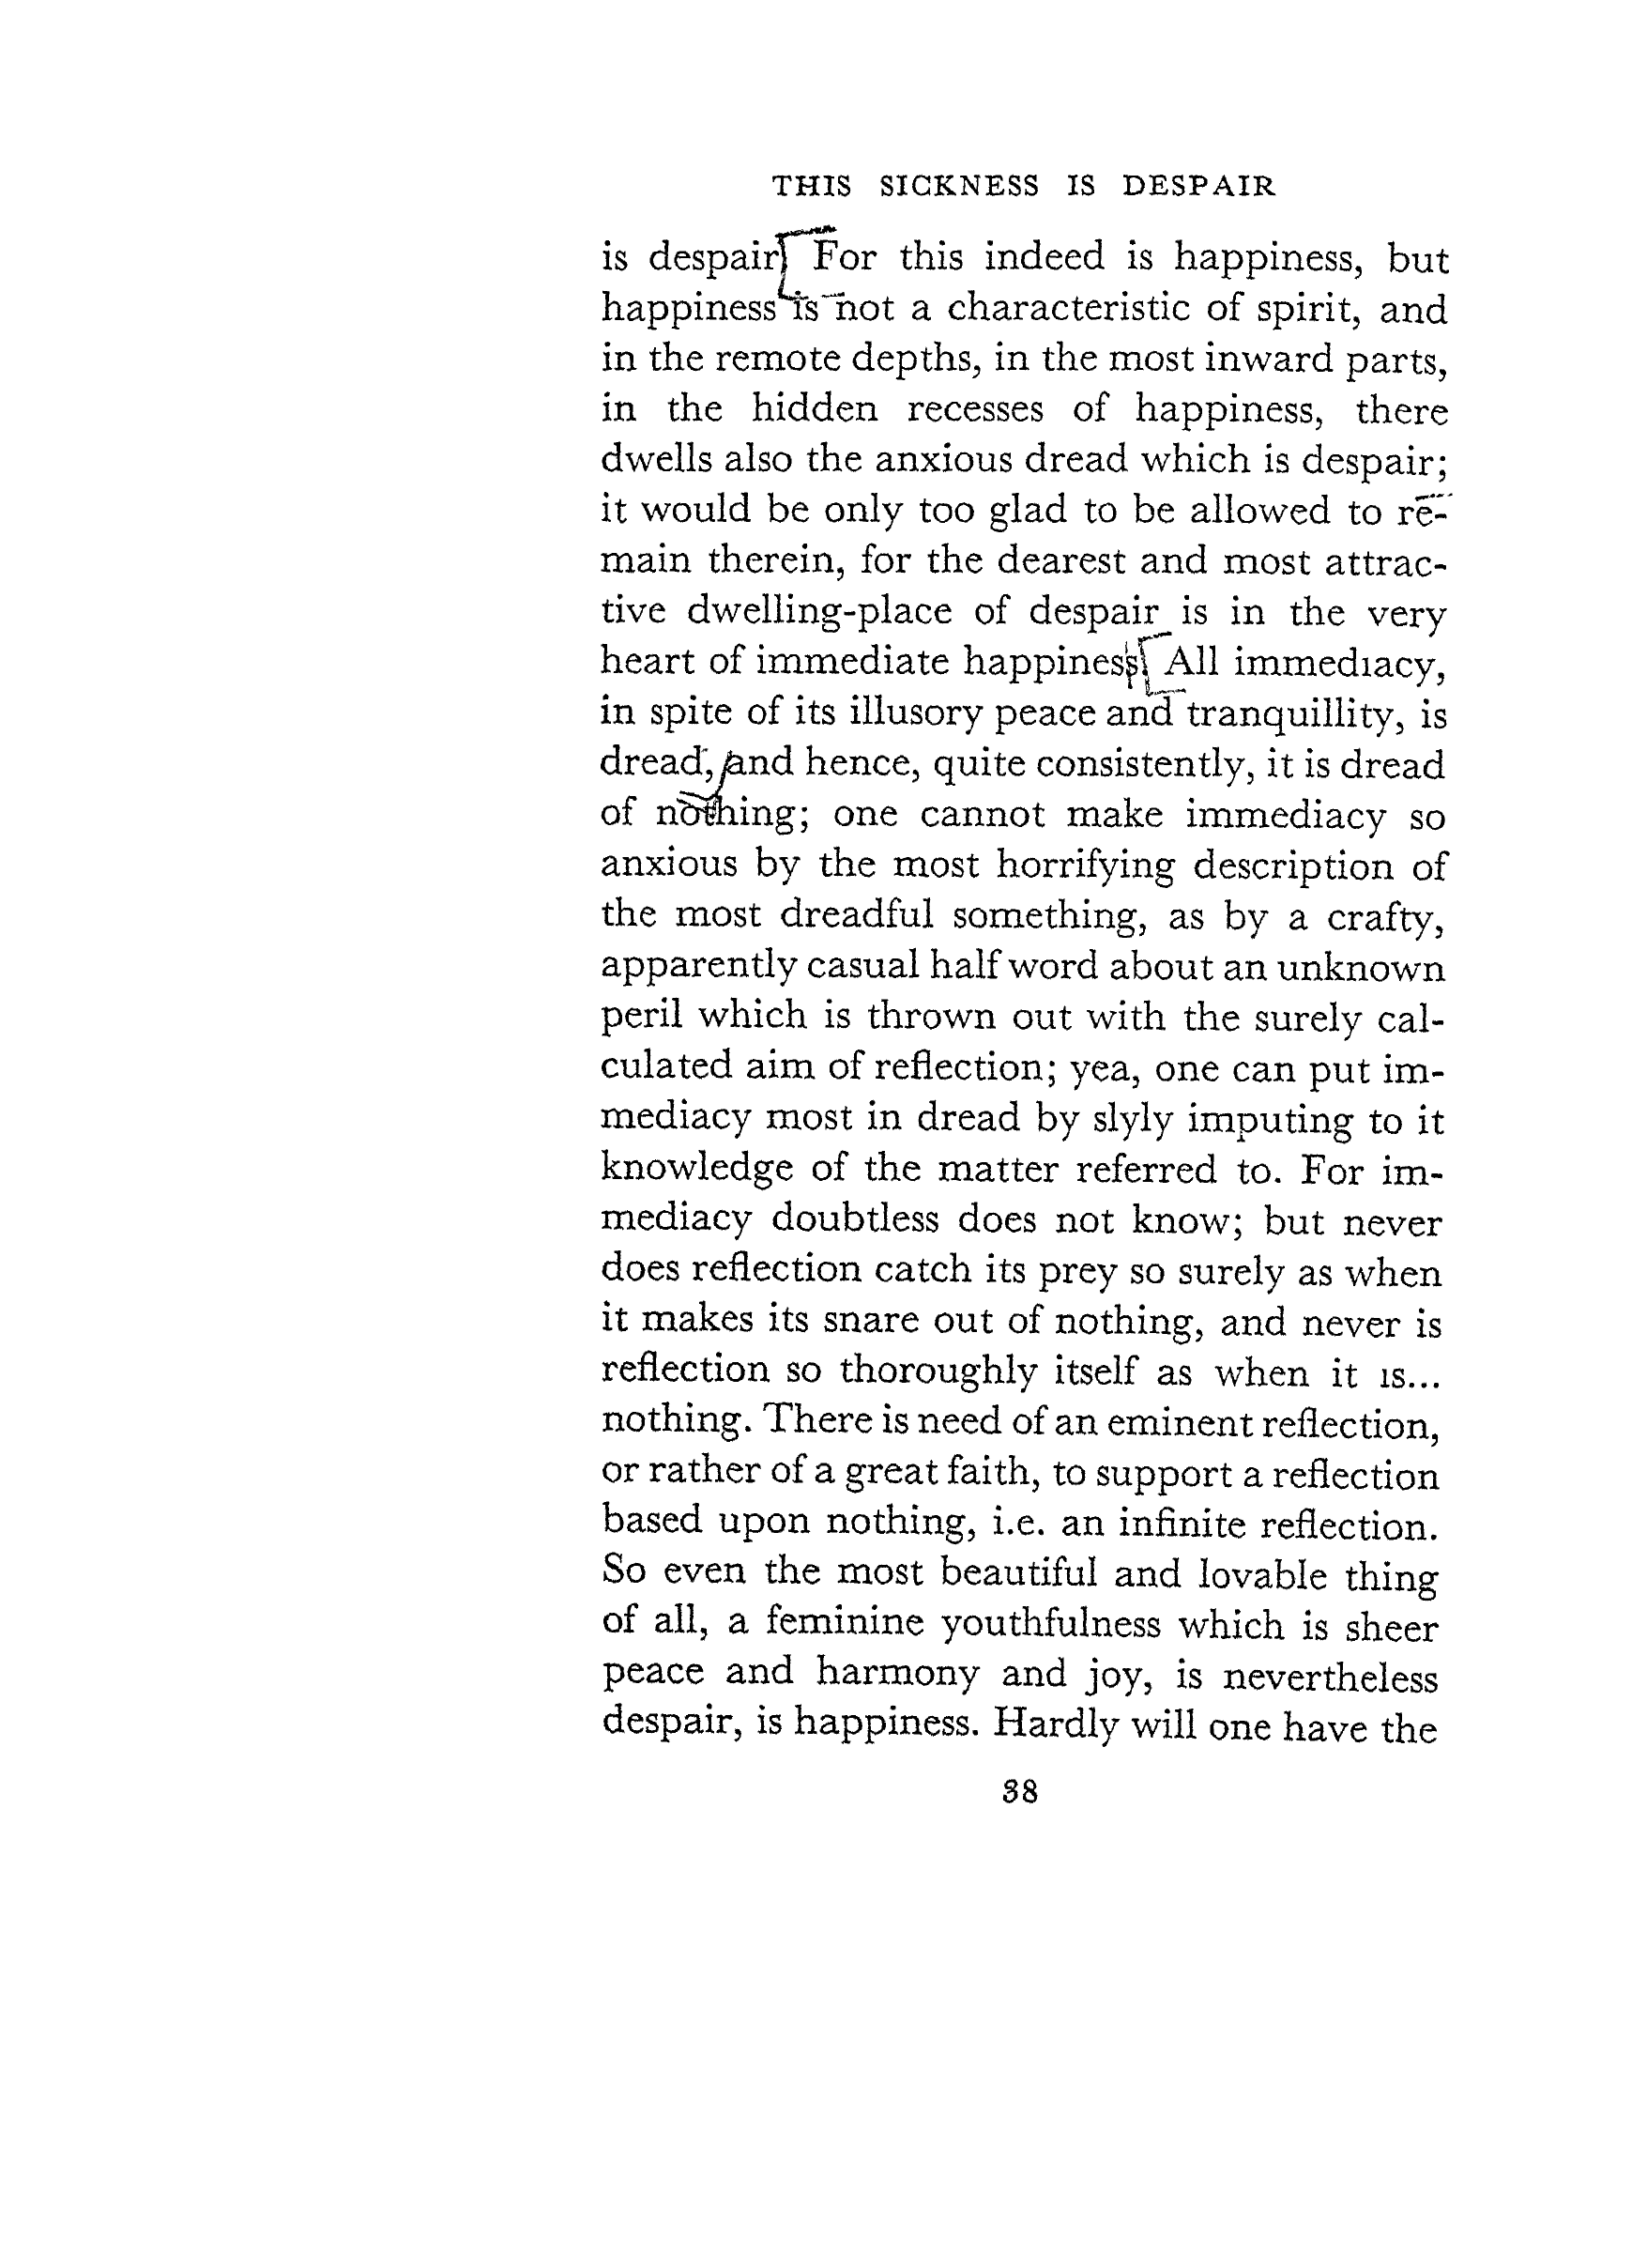 THIS SICKNESS IS DESPAIR
is despair. For this indeed is happiness, but
happiness is not a characteristic of spirit, and
in the remote depths, in the most inward parts,
in the hidden recesses of happiness, there
dwells also the anxious dread which is despair;
it would be only too glad to be allowed to re-
main therein, for the dearest and most attrac-
tive dwelling-place of despair is in the very
heart of immediate happiness. All immediacy,
in spite of its illusory peace and tranquillity, is
dread, and hence, quite consistently, it is dread
of nothing; one cannot make immediacy so
anxious by the most horrifying description of
the most dreadful something, as by a crafty,
apparently casual half word about an unknown
peril which is thrown out with the surely cal-
culated aim of reflection; yea, one can put im-
mediacy most in dread by slyly imputing to it
knowledge of the matter referred to. For im-
mediacy doubtless does not know; but never
does reflection catch its prey so surely as when
it makes its snare out of nothing, and never is
reflection so thoroughly itself as when it is...
nothing. There is need of an eminent reflection,
or rather of a great faith, to support a reflection
based upon nothing, i.e. an infinite reflection.
So even the most beautiful and lovable thing
of all, a feminine youthfulness which is sheer
peace and harmony and joy, is nevertheless
despair, is happiness. Hardly will one have the
38